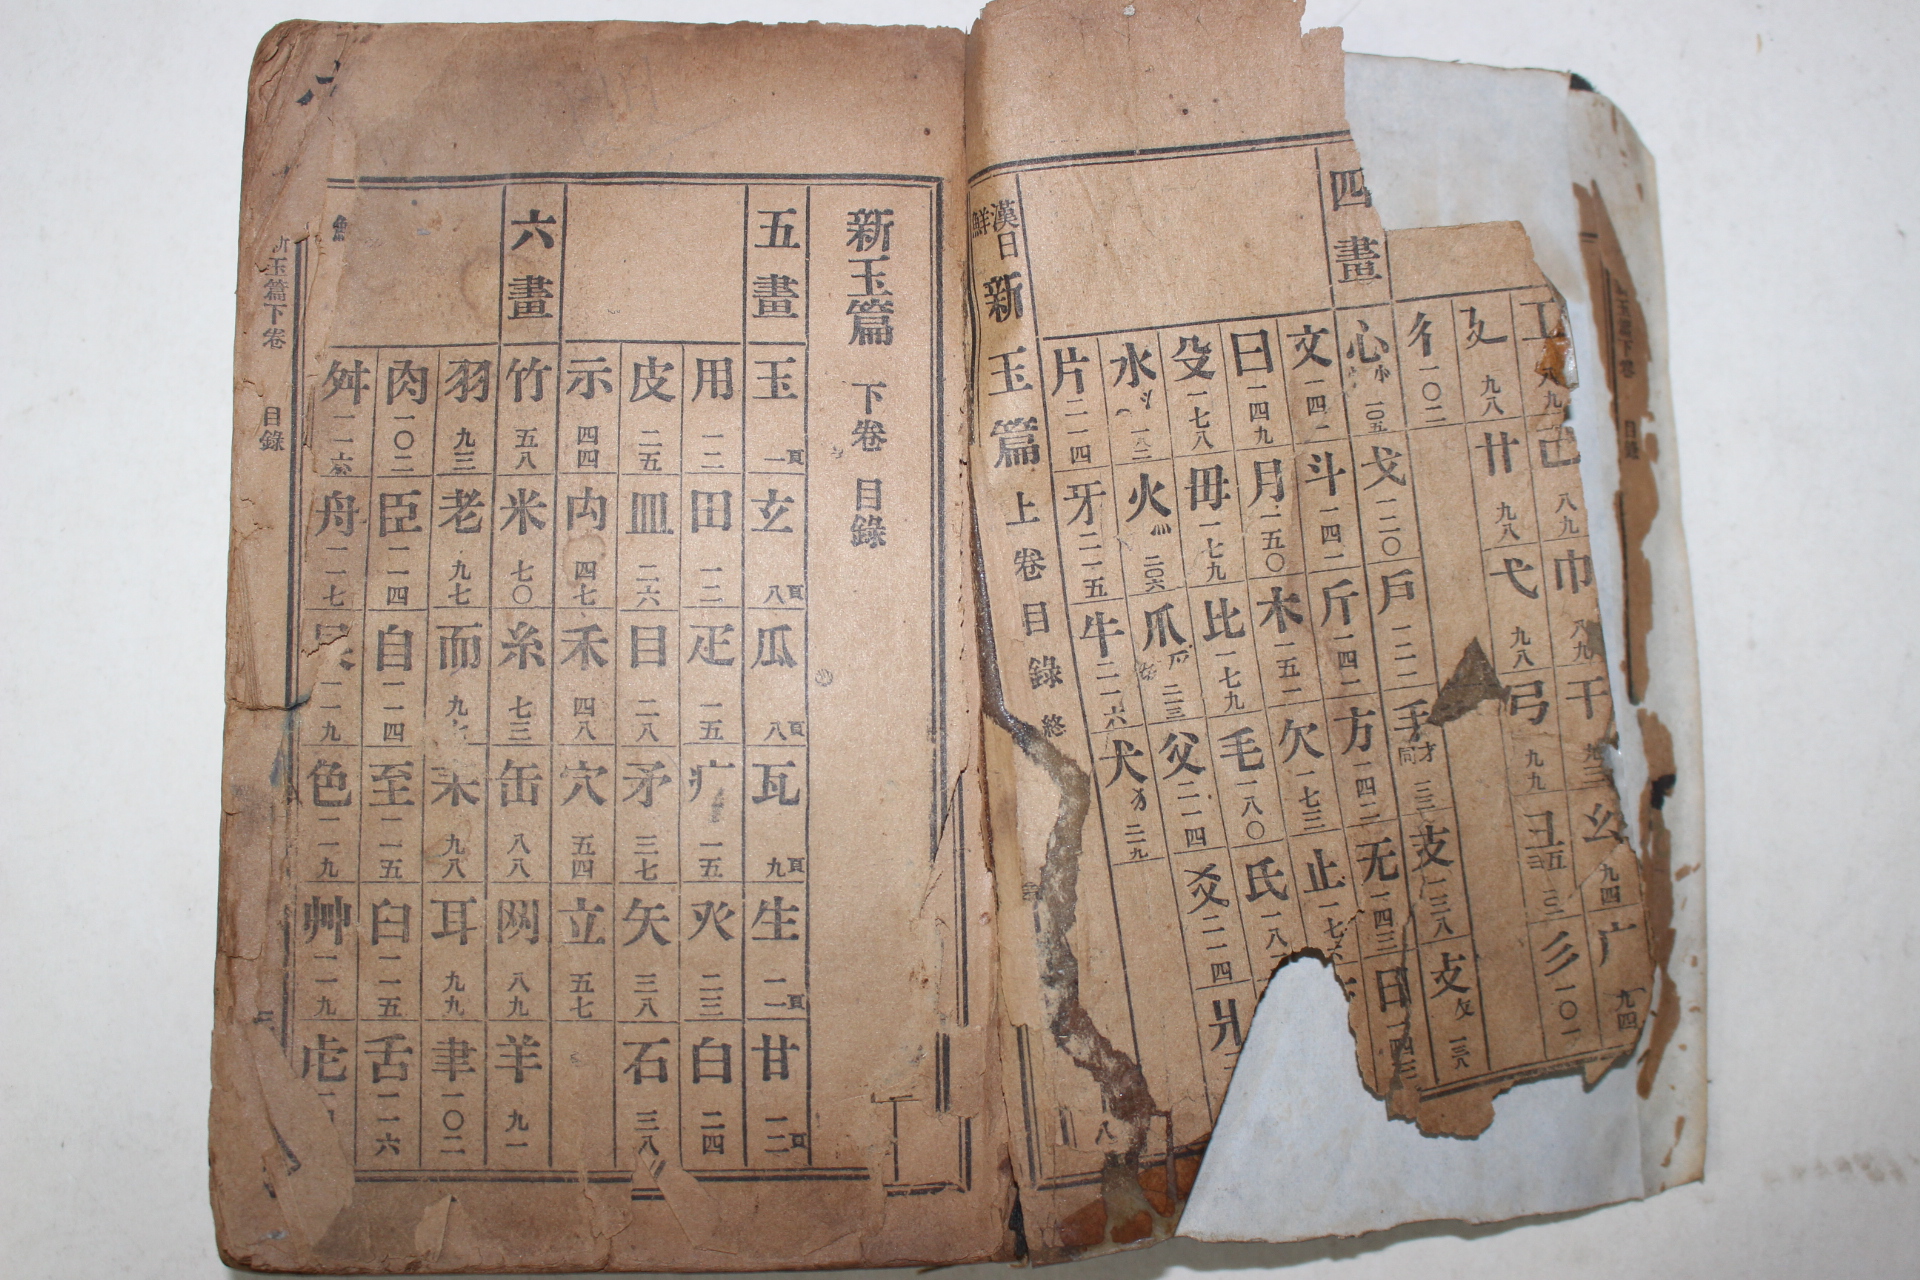 工 八九 己 八九 巾 八九 干 九三 幺 九四 广 九四
廴 九八 廾 九八 弋 九八 弓 九九 彑 彡 一〇一
彳 一〇二
四畫
心 小 一〇五 戈 一二〇 戶 一二一 手 才同 一二三 支 一三八 攴 攵 一三八
文 一四一 斗 一四一 斤 一四一 方 一四二 无 一四三 日 一四三
曰 一四九 月 一五〇 木 一五一 欠 一七三 止 一七六
殳 一七八 毋 一七九 比 一七九 毛 一八〇 氏 一八
水 氵 一八二 火 灬 二〇六 爪 爫 二一三 父 二一四 爻 二一四 爿
片 二一四 牙 二一五 牛 二一六 犬 犭 二一九
漢日鮮 新玉篇 上卷 目錄 終
八
新玉篇 下卷 目錄
五畫
玉 一頁 玄 八頁 瓜 八頁 瓦 九頁 生 一一頁 甘 一二頁
用 一二 田 一二 疋 一五 疒 一五 癶 二三 白 二四
皮 二五 皿 二六 目 二八 矛 三七 矢 三八 石 三八
示 四四 禸 四七 禾 四八 穴 五四 立 五七
六畫
竹 五八 米 七〇 糸 七三 缶 八八 网 八九 羊 九一
羽 九三 老 九七 而 九七 耒 九八 耳 九九 聿 一〇二
肉 一〇二 臣 一一四 自 一一四 至 一一五 臼 一一五 舌 一一六
舛 一一六 舟 一一七 艮 一一九 色 一一九 艸 一一九 虍
新玉篇下卷 目錄